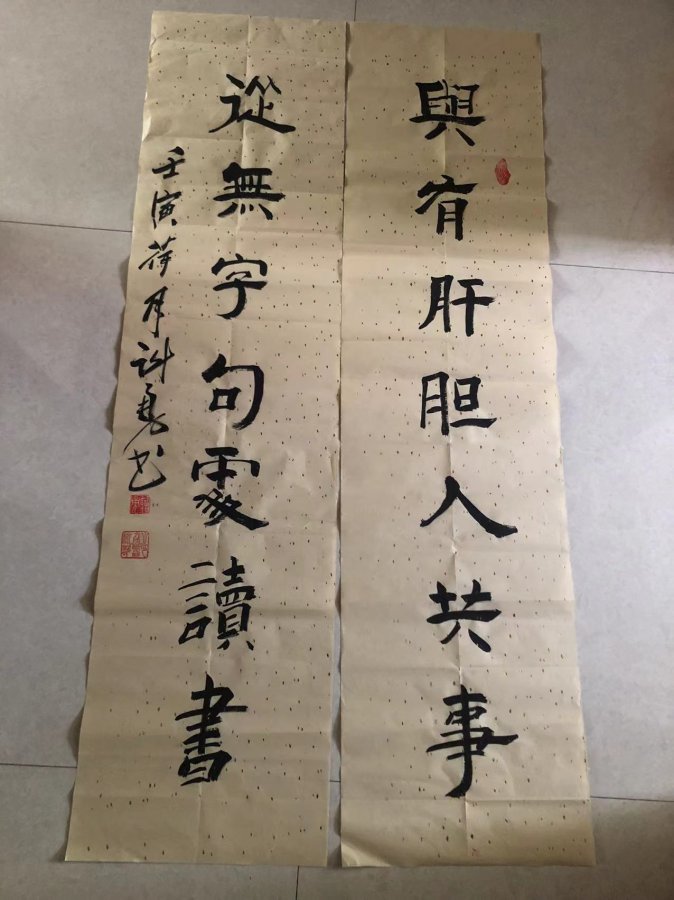 與有肝胆人共事
從無字句處讀書
壬寅荷月謝勇书